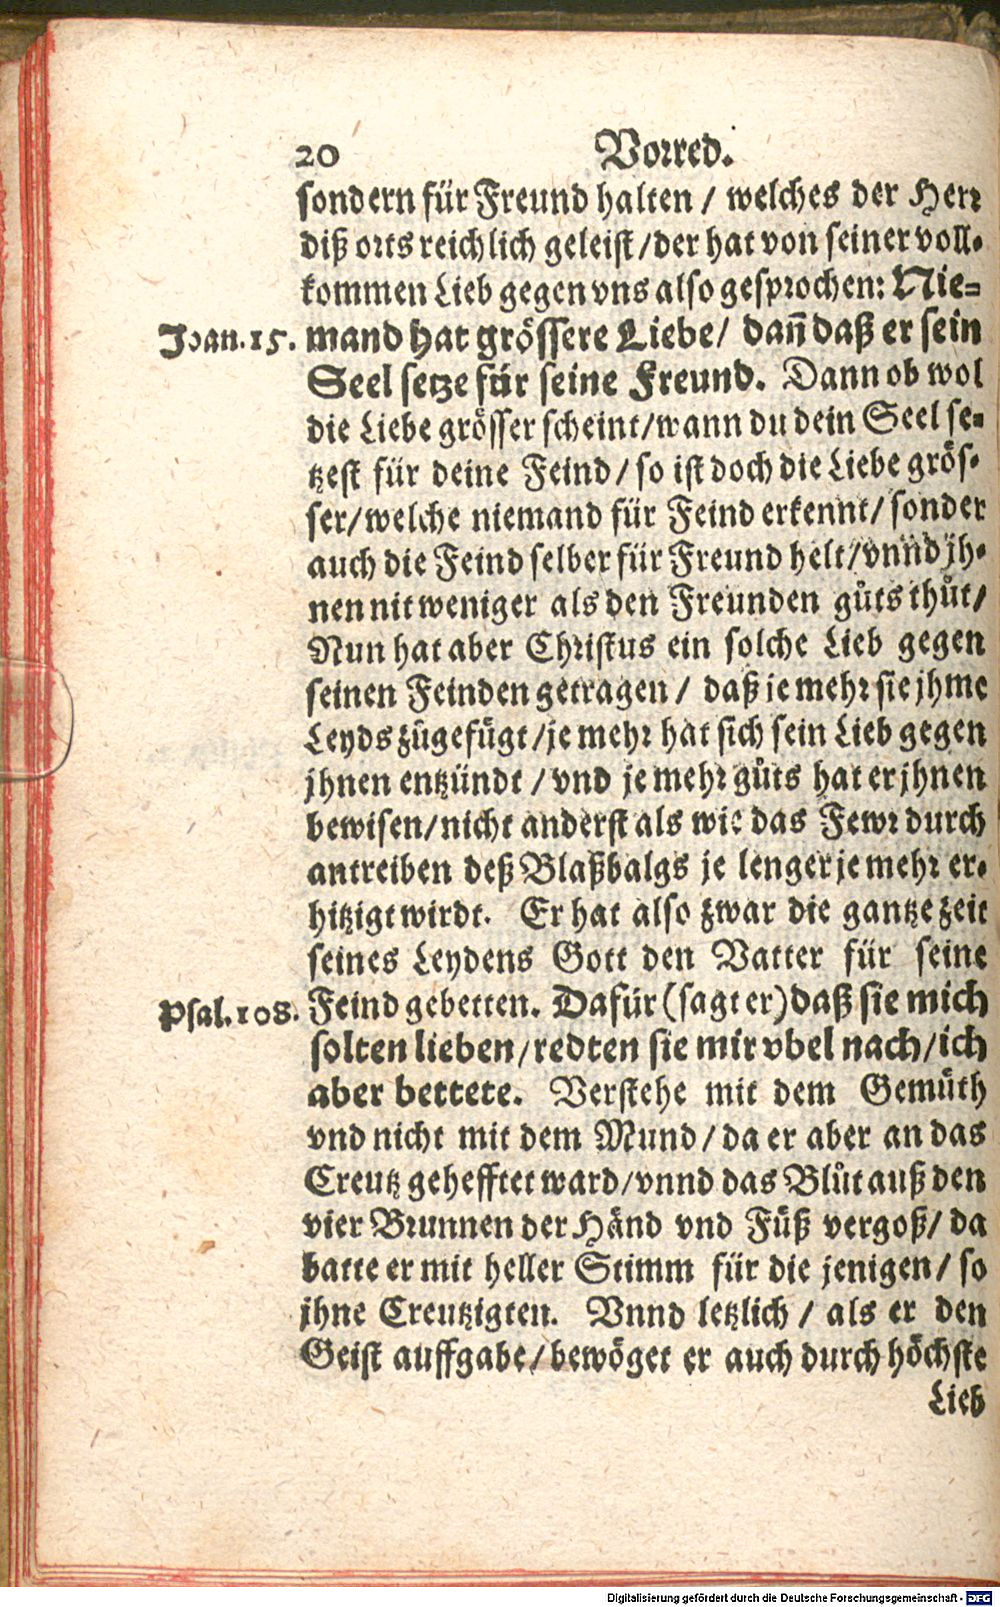 20 Vorred.
sondern für Freund halten / welches der Herr
diß orts reichlich geleist / der hat von seiner voll-
kommen Lieb gegen vns also gesprochen: Nie-
Joan. 15. mand hat grössere Liebe / dañ daß er sein
Seel setze für seine Freund. Dann ob wol
die Liebe grösser scheint / wann du dein Seel se-
tzest für deine Feind / so ist doch die Liebe grös-
ser / welche niemand für Feind erkennt / sonder
auch die Feind selber für Freund helt / vnnd jh-
nen nit weniger als den Freunden gůts thůt /
Nun hat aber Christus ein solche Lieb gegen
seinen Feinden getragen / daß je mehr sie jhme
Leyds zůgefügt / je mehr hat sich sein Lieb gegen
jhnen entzündt / vnd je mehr gůts hat er jhnen
bewisen / nicht anderst als wie das Fewr durch
antreiben deß Blaßbalgs je lenger je mehr er-
hitzigt wirdt. Er hat also zwar die gantze zeit
seines Leydens Gott den Vatter für seine
Psal. 108. Feind gebetten. Dafür (sagt er) daß sie mich
solten lieben / redten sie mir vbel nach / ich
aber bettete. Verstehe mit dem Gemüth
vnd nicht mit dem Mund / da er aber an das
Creutz gehefftet ward / vnnd das Blůt auß den
vier Brunnen der Händ vnd Füß vergoß / da
batte er mit heller Stimm für die jenigen / so
jhne Creutzigten. Vnnd letzlich / als er den
Geist auffgabe / bewöget er auch durch höchste
Lieb
Digitalisierung gefördert durch die Deutsche Forschungsgemeinschaft - DFG